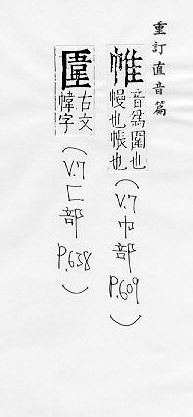 重訂直音篇
帷
音爲圍也
幔也帳也
(V.7 巾部 P.609)
古文
幃字
(V.7 匚部 P.638)